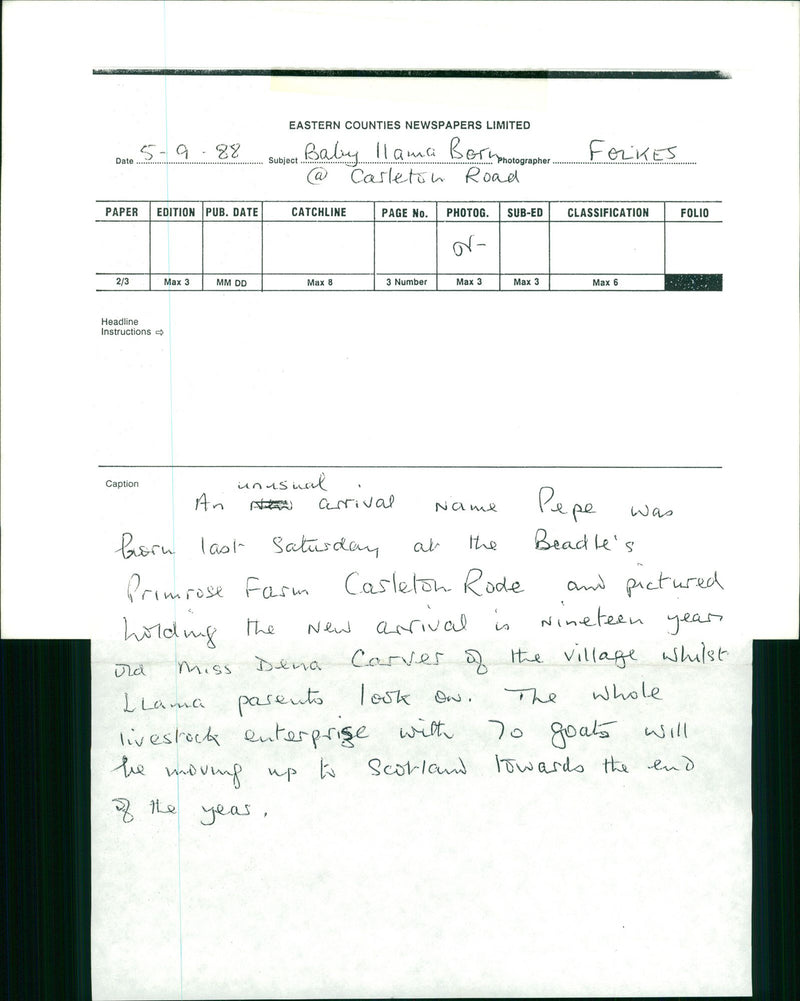 EASTERN COUNTIES NEWSPAPERS LIMITED
Date 5-9-88 Subject Baby llama Born Photographer FOLKES
@ Carleton Road
PAPER EDITION PUB. DATE CATCHLINE PAGE No. PHOTOG. SUB-ED CLASSIFICATION FOLIO
2/3 Max 3 MM DD Max 8 3 Number Max 3 Max 3 Max 6
Headline
Instructions ⇨
Caption
unusual
An arrival Name Pepe was
Born last Saturday at the Beadle's
Primrose Farm Carleton Rode and pictured
holding the New arrival is Nineteen years
old Miss Dena Carver of the village whilst
LLama parents look on. The whole
livestock enterprise with 70 goats will
be moving up to Scotland towards the end
of the year.